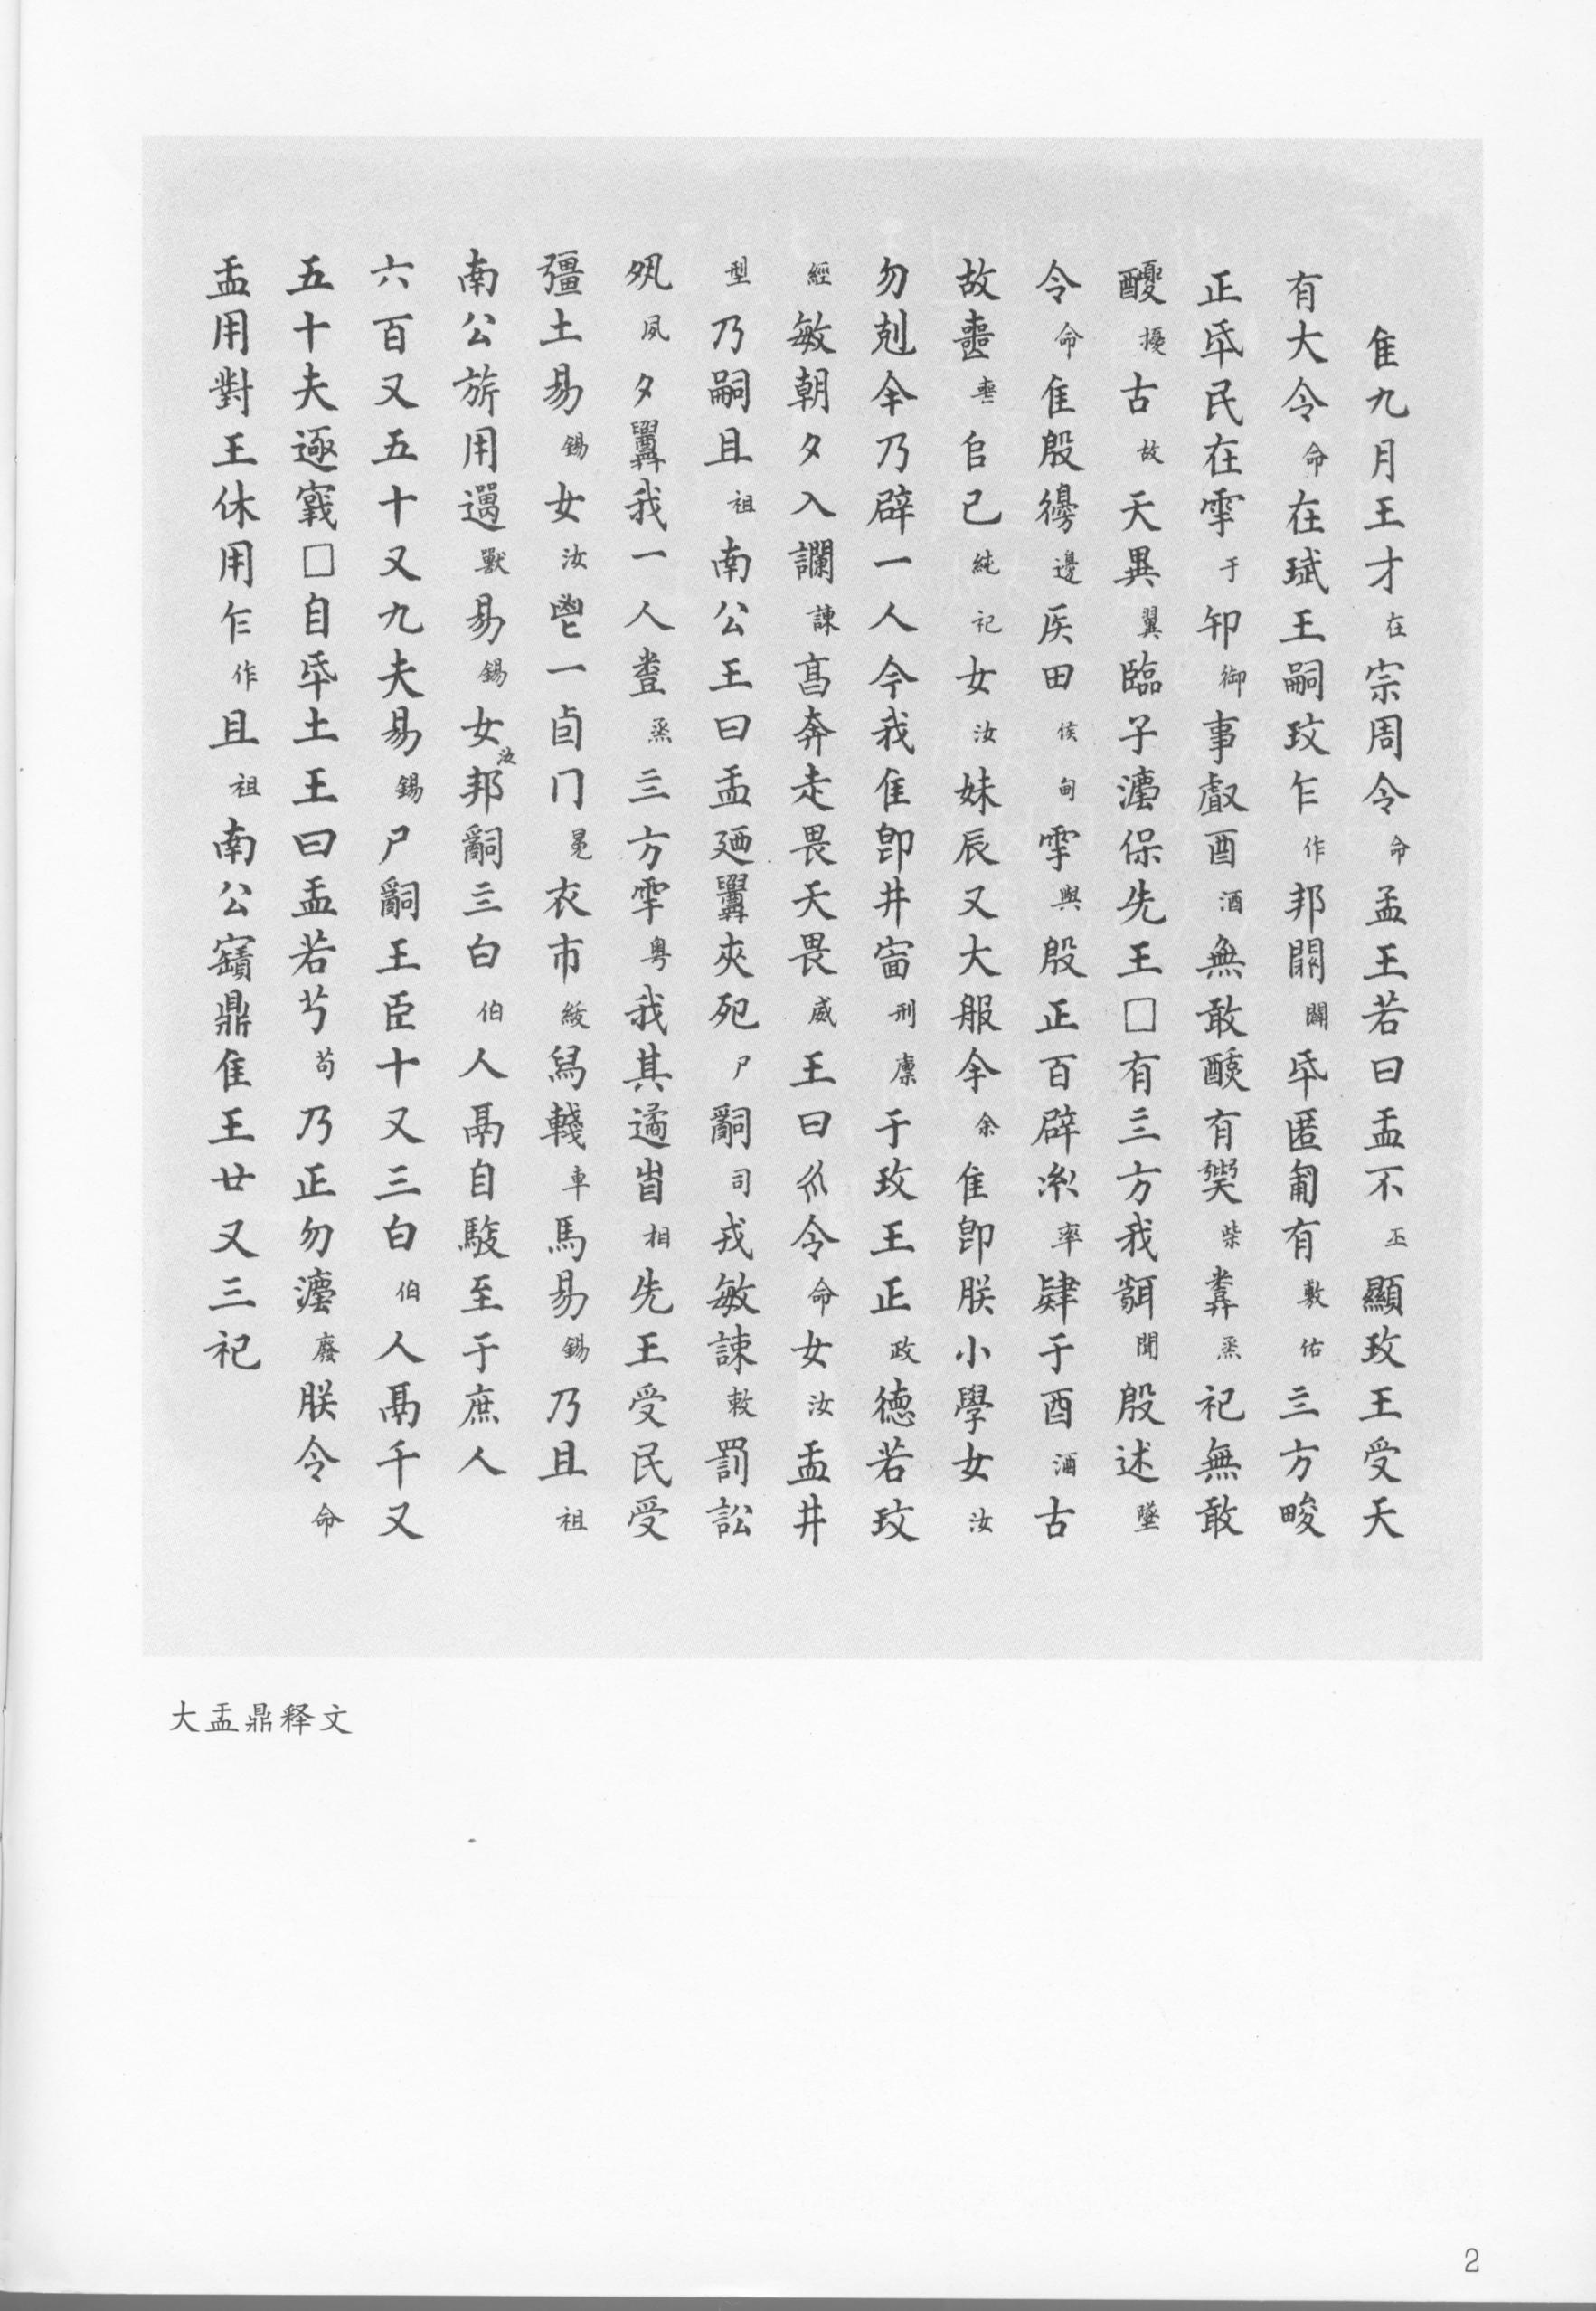 隹九月王才在宗周令命盂王若曰盂不丕顯玟王受天
有大令命在珷王嗣玟乍作邦闢闢氒匿匍有敷佑三方畯
正氒民在雩于卸御事酉酒無敢有柴烝祀無敢
擾古故天異翼臨子灋保先王□有三方我聞殷述墜
令命隹殷邊邊侯田侯甸雩與殷正百辟率肄于酉酒古
故喪㠯已純祀女汝妹辰又大服余余隹即朕小學女汝
勿剋余乃辟一人今我隹即井刑稟于玟王正政德若玟
經敏朝夕入讕諫亯奔走畏天畏威王曰令命女汝盂井
型乃嗣且祖南公王曰盂廼夾死尸嗣司戎敏諫敕罰訟
夙夙夕我一人烝三方雩粤我其遹眚相先王受民受
彊土易錫女汝鬯一卣冂冕衣巿紱舄車馬易錫乃且祖
南公旂用獸易錫女汝邦嗣三白伯人鬲自馭至于庶人
六百又五十又九夫易錫尸嗣王臣十又三白伯人鬲千又
五十夫逐□自氒土王曰盂若芍苟乃正勿灋廢朕令命
盂用對王休用乍作且祖南公寶鼎隹王廿又三祀
大盂鼎释文
2